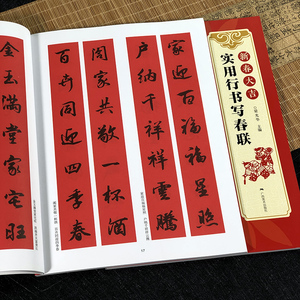 家迎百福福星照
户納千祥祥雲騰
闔家共敬一杯酒
百卉同迎四季春
金玉滿堂家宅旺
新春大吉
实用行书写春联
主编